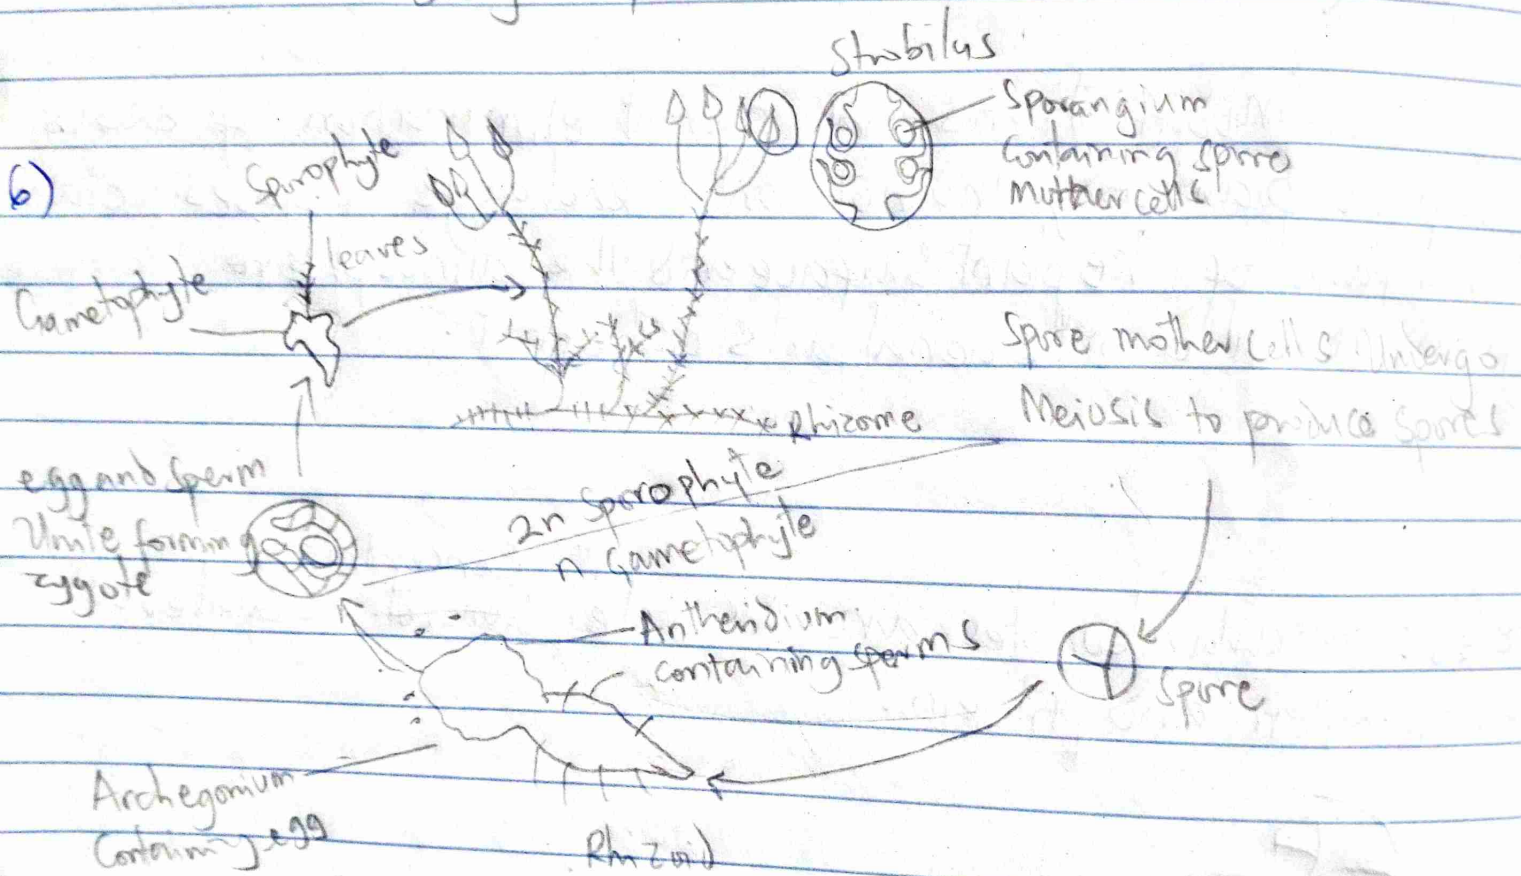 Strobilus
Sporangium
containing spore
Mother cells
6)
Sporophyte
leaves
Gametophyte
Spore mother cells Undergo
Meiosis to produce spores
Rhizome
egg and sperm
Unite forming
zygote
2n Sporophyte
n Gametophyte
Antheridium
containing sperms
Spore
Archegonium
Containing egg
Rhizoid